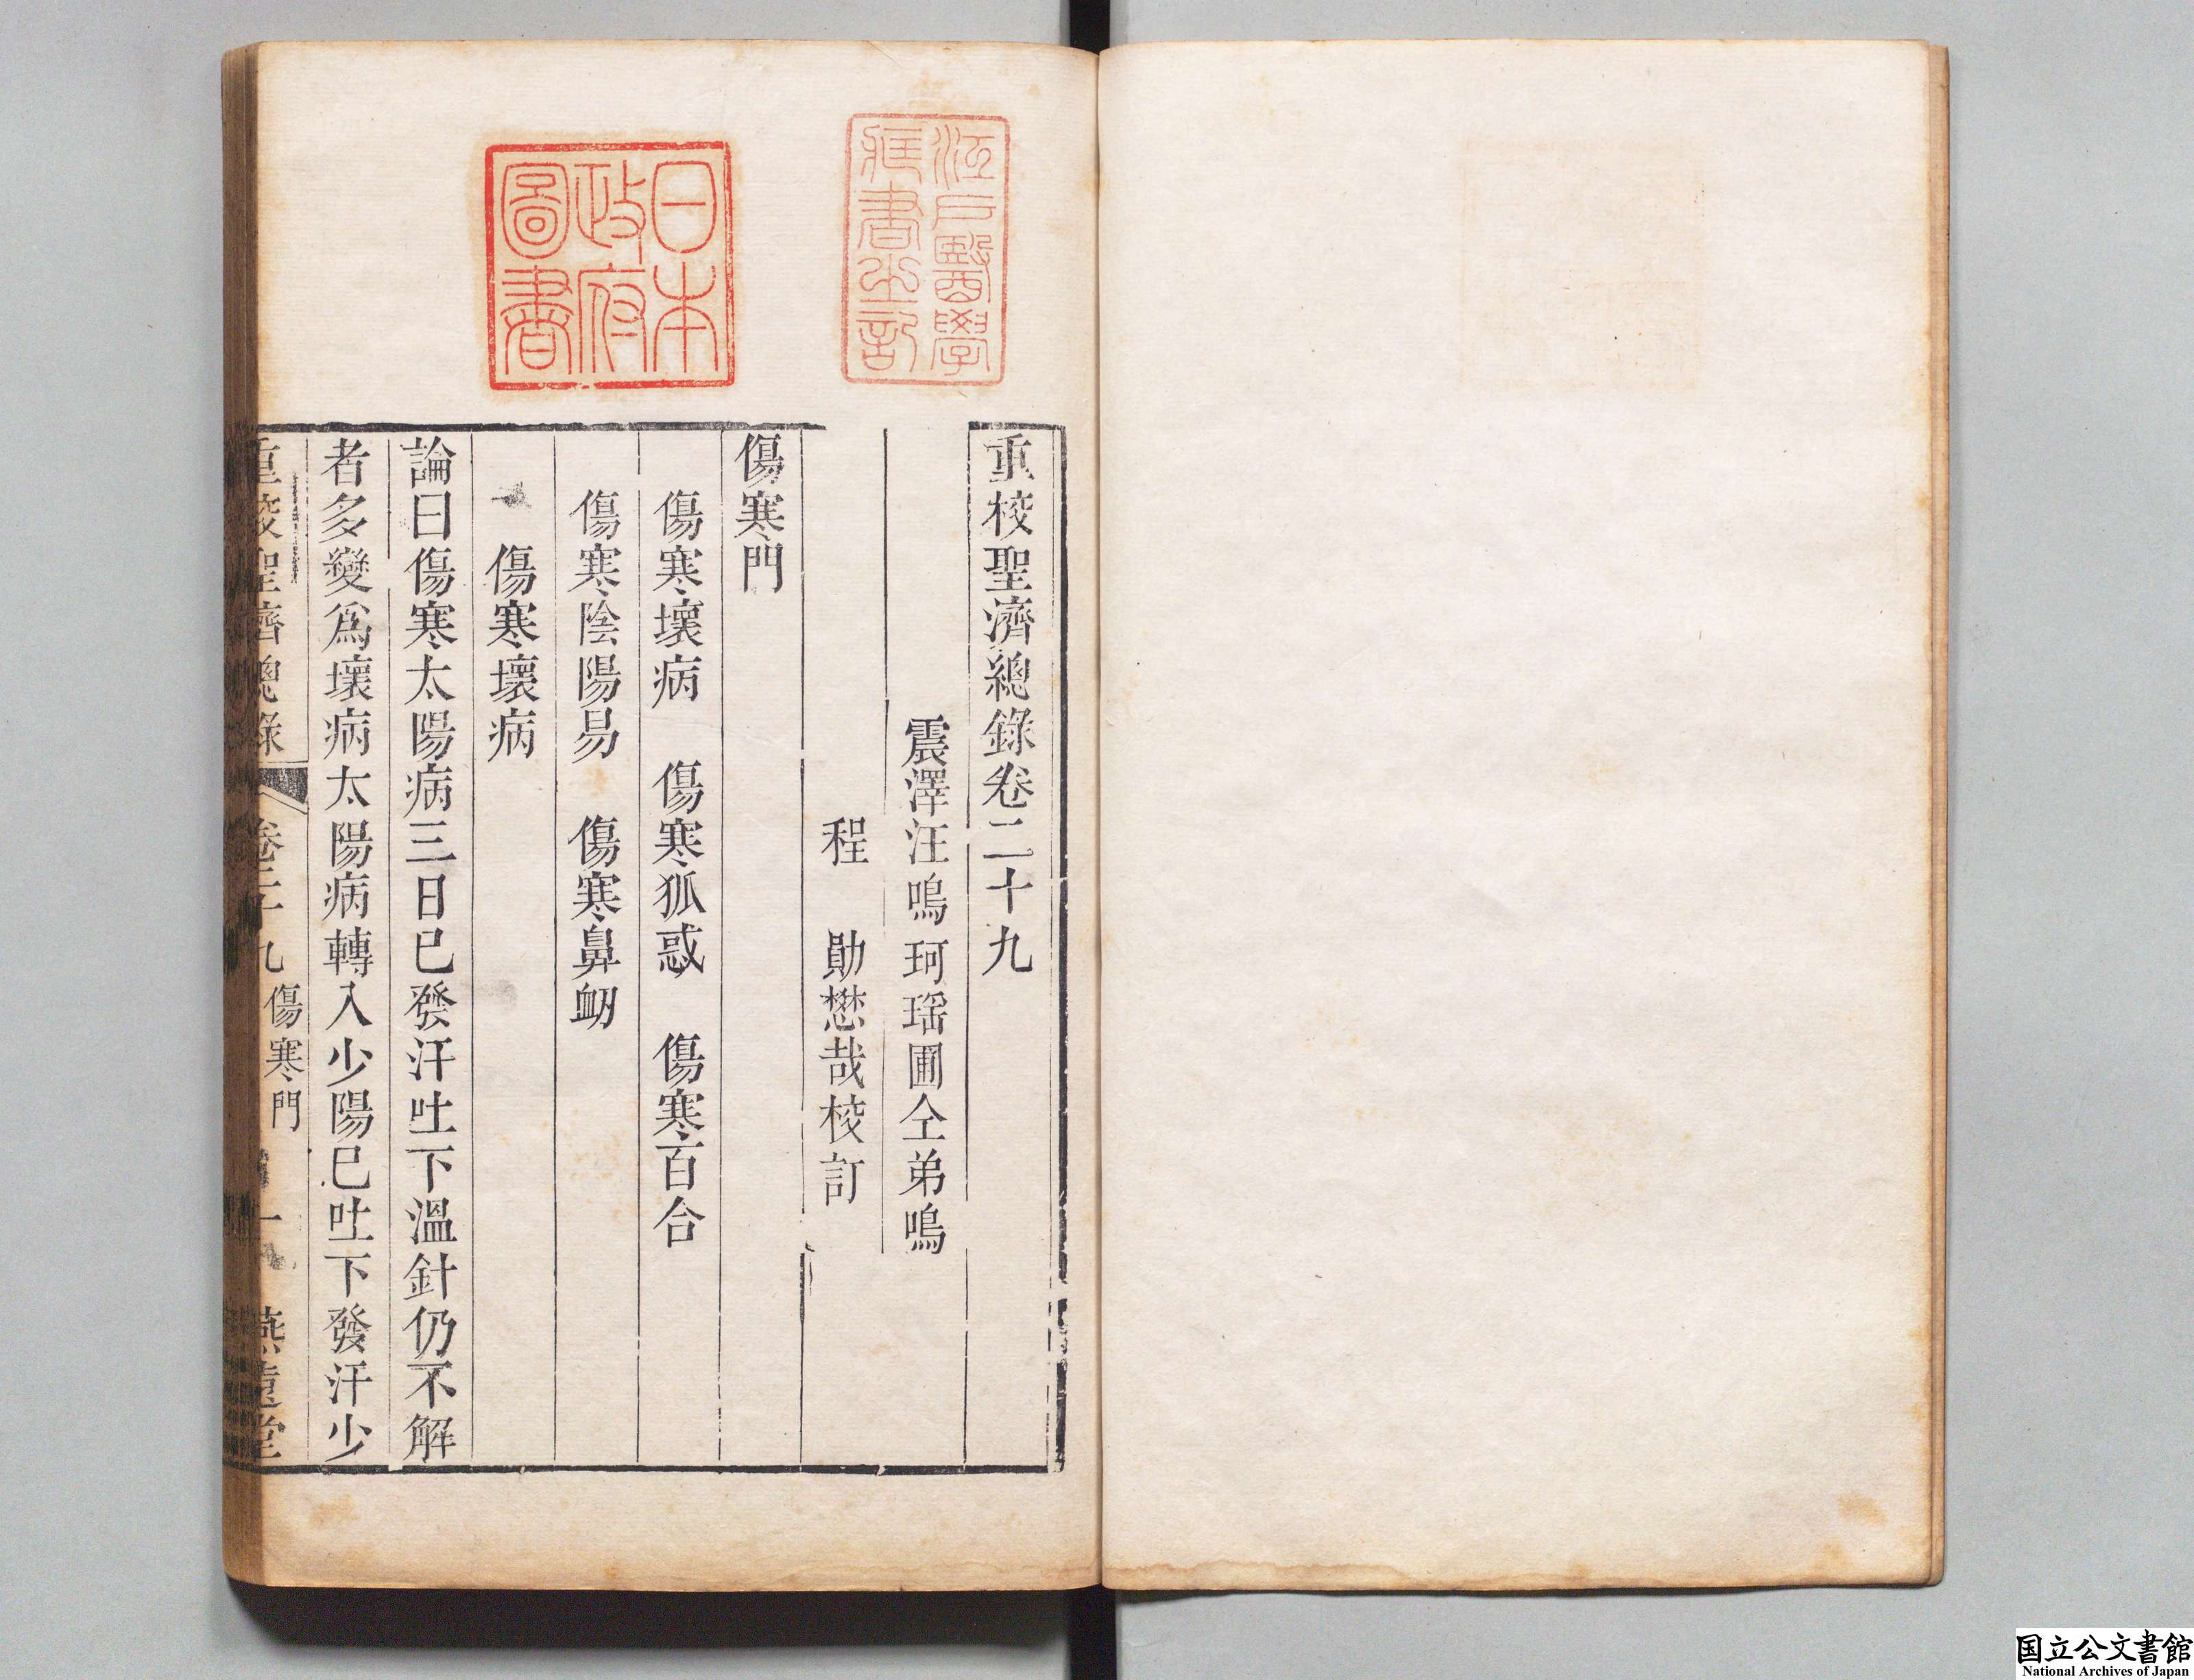 江戶醫學
藏書之記
日本
政府
圖書
重校聖濟總錄卷二十九
震澤汪鳴珂瑶圃仝弟鳴
程 勛懋哉校訂
傷寒門
傷寒壞病 傷寒狐惑 傷寒百合
傷寒陰陽易 傷寒鼻衂
傷寒壞病
論曰傷寒太陽病三日已發汗吐下溫針仍不解
者多變爲壞病太陽病轉入少陽已吐下發汗少
重校聖濟總錄 卷二十九 傷寒門 一 燕遠堂
国立公文書館
National Archives of Japan